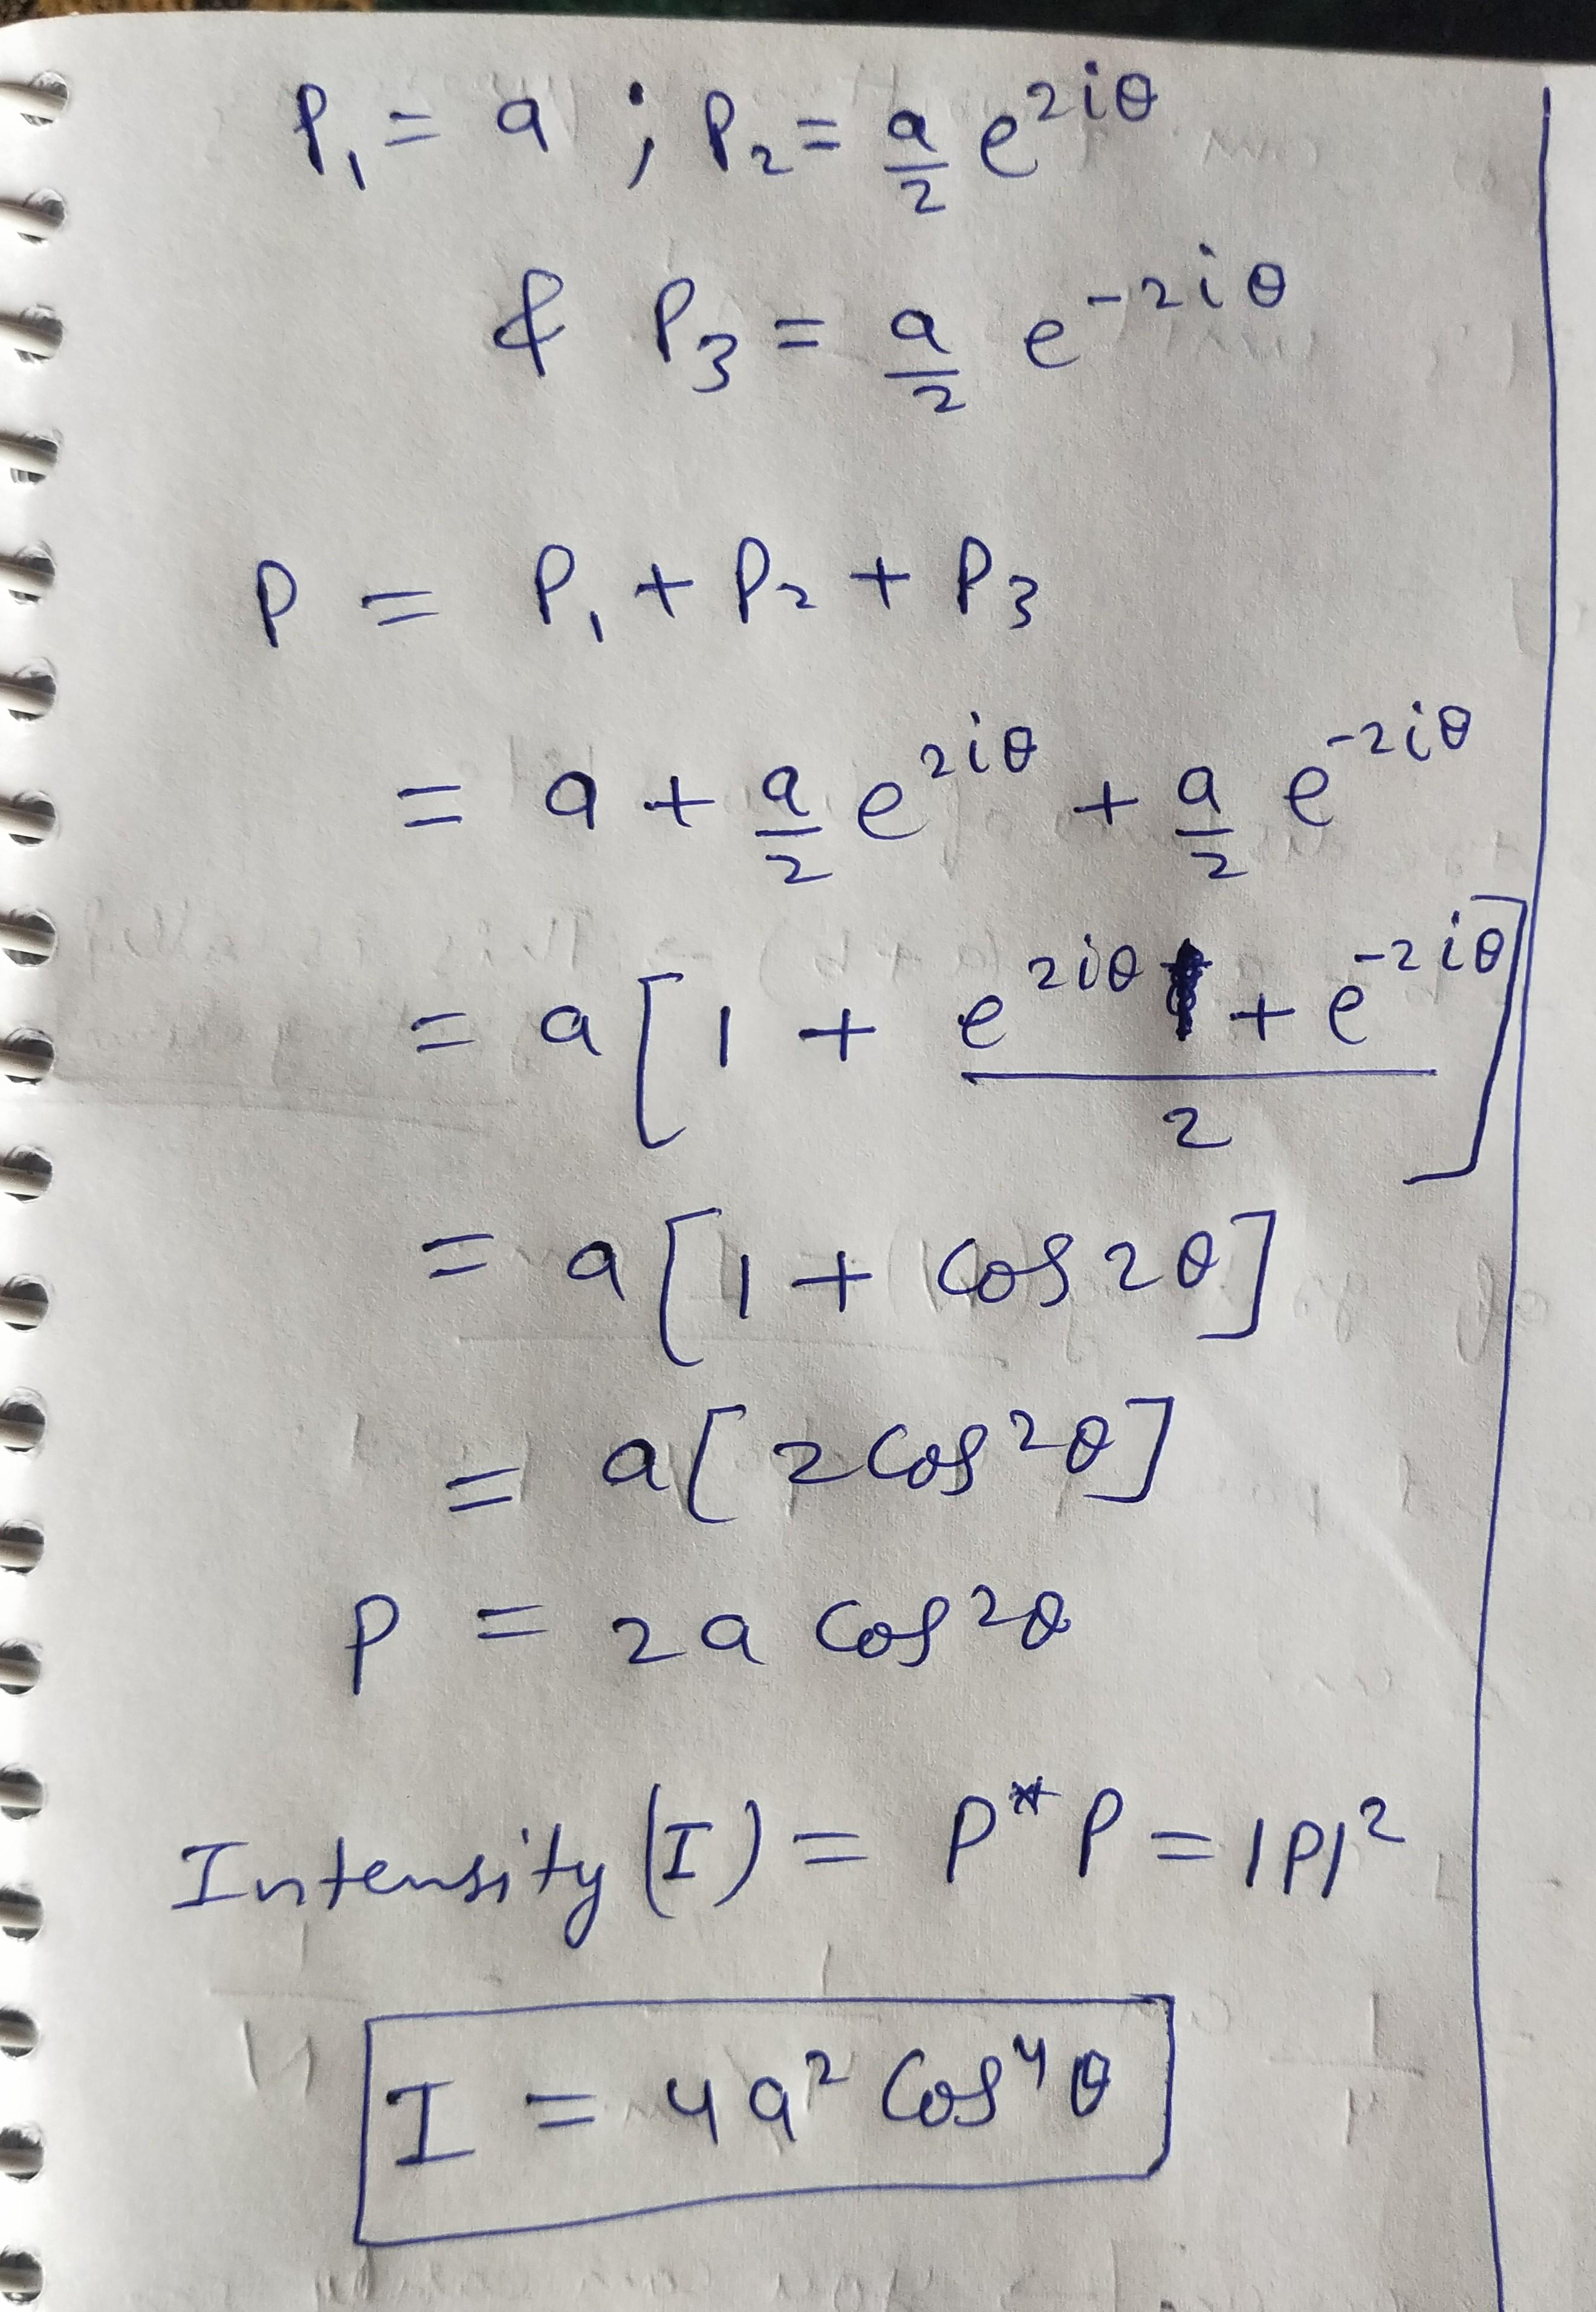 P₁ = a ; P₂ = a/2 e^{2iθ}
& P₃ = a/2 e^{-2iθ}
P = P₁ + P₂ + P₃
= a + a/2 e^{2iθ} + a/2 e^{-2iθ}
= a [ 1 + (e^{2iθ} + e^{-2iθ})/2 ]
= a [ 1 + cos 2θ ]
= a [ 2 cos²θ ]
P = 2a cos²θ
Intensity (I) = P* P = |P|²
I = 4a² cos⁴θ